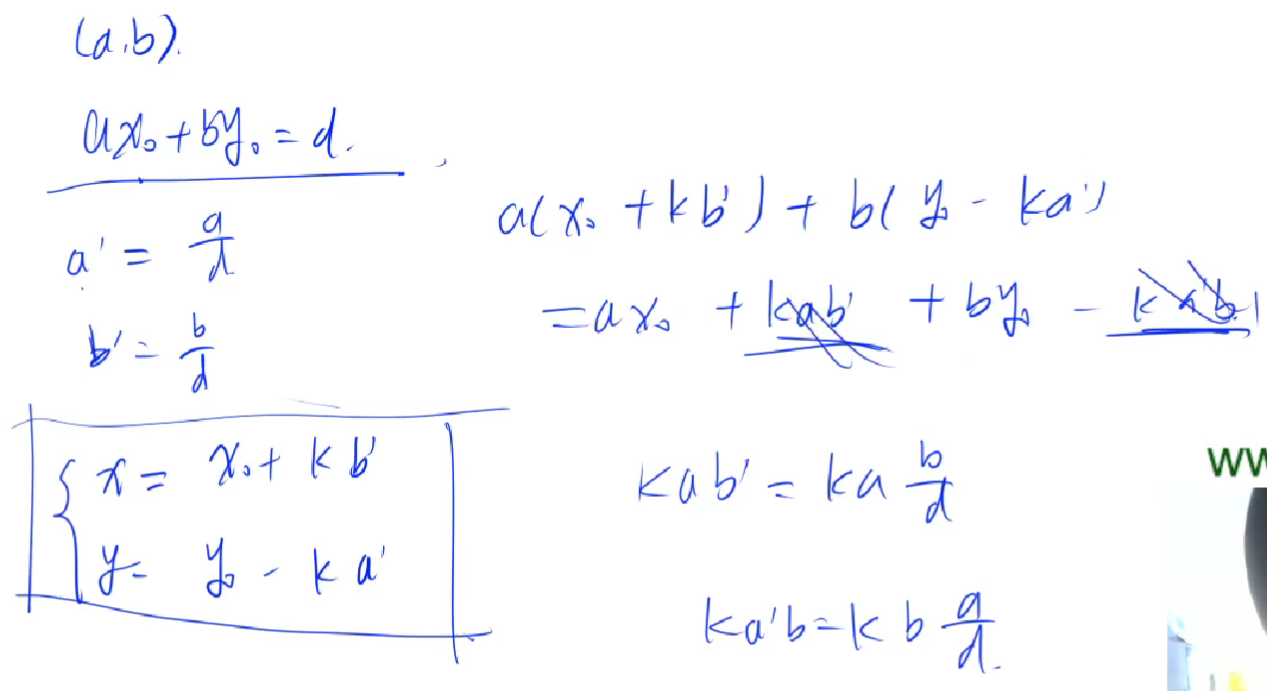 (a,b).
ax₀+by₀=d.
a'=a/d
b'=b/d
{x=x₀+kb'
y=y₀-ka'
a(x₀+kb')+b(y₀-ka')
=ax₀+kab'+by₀-ka'b
kab'=ka b/d
ka'b=kb a/d.